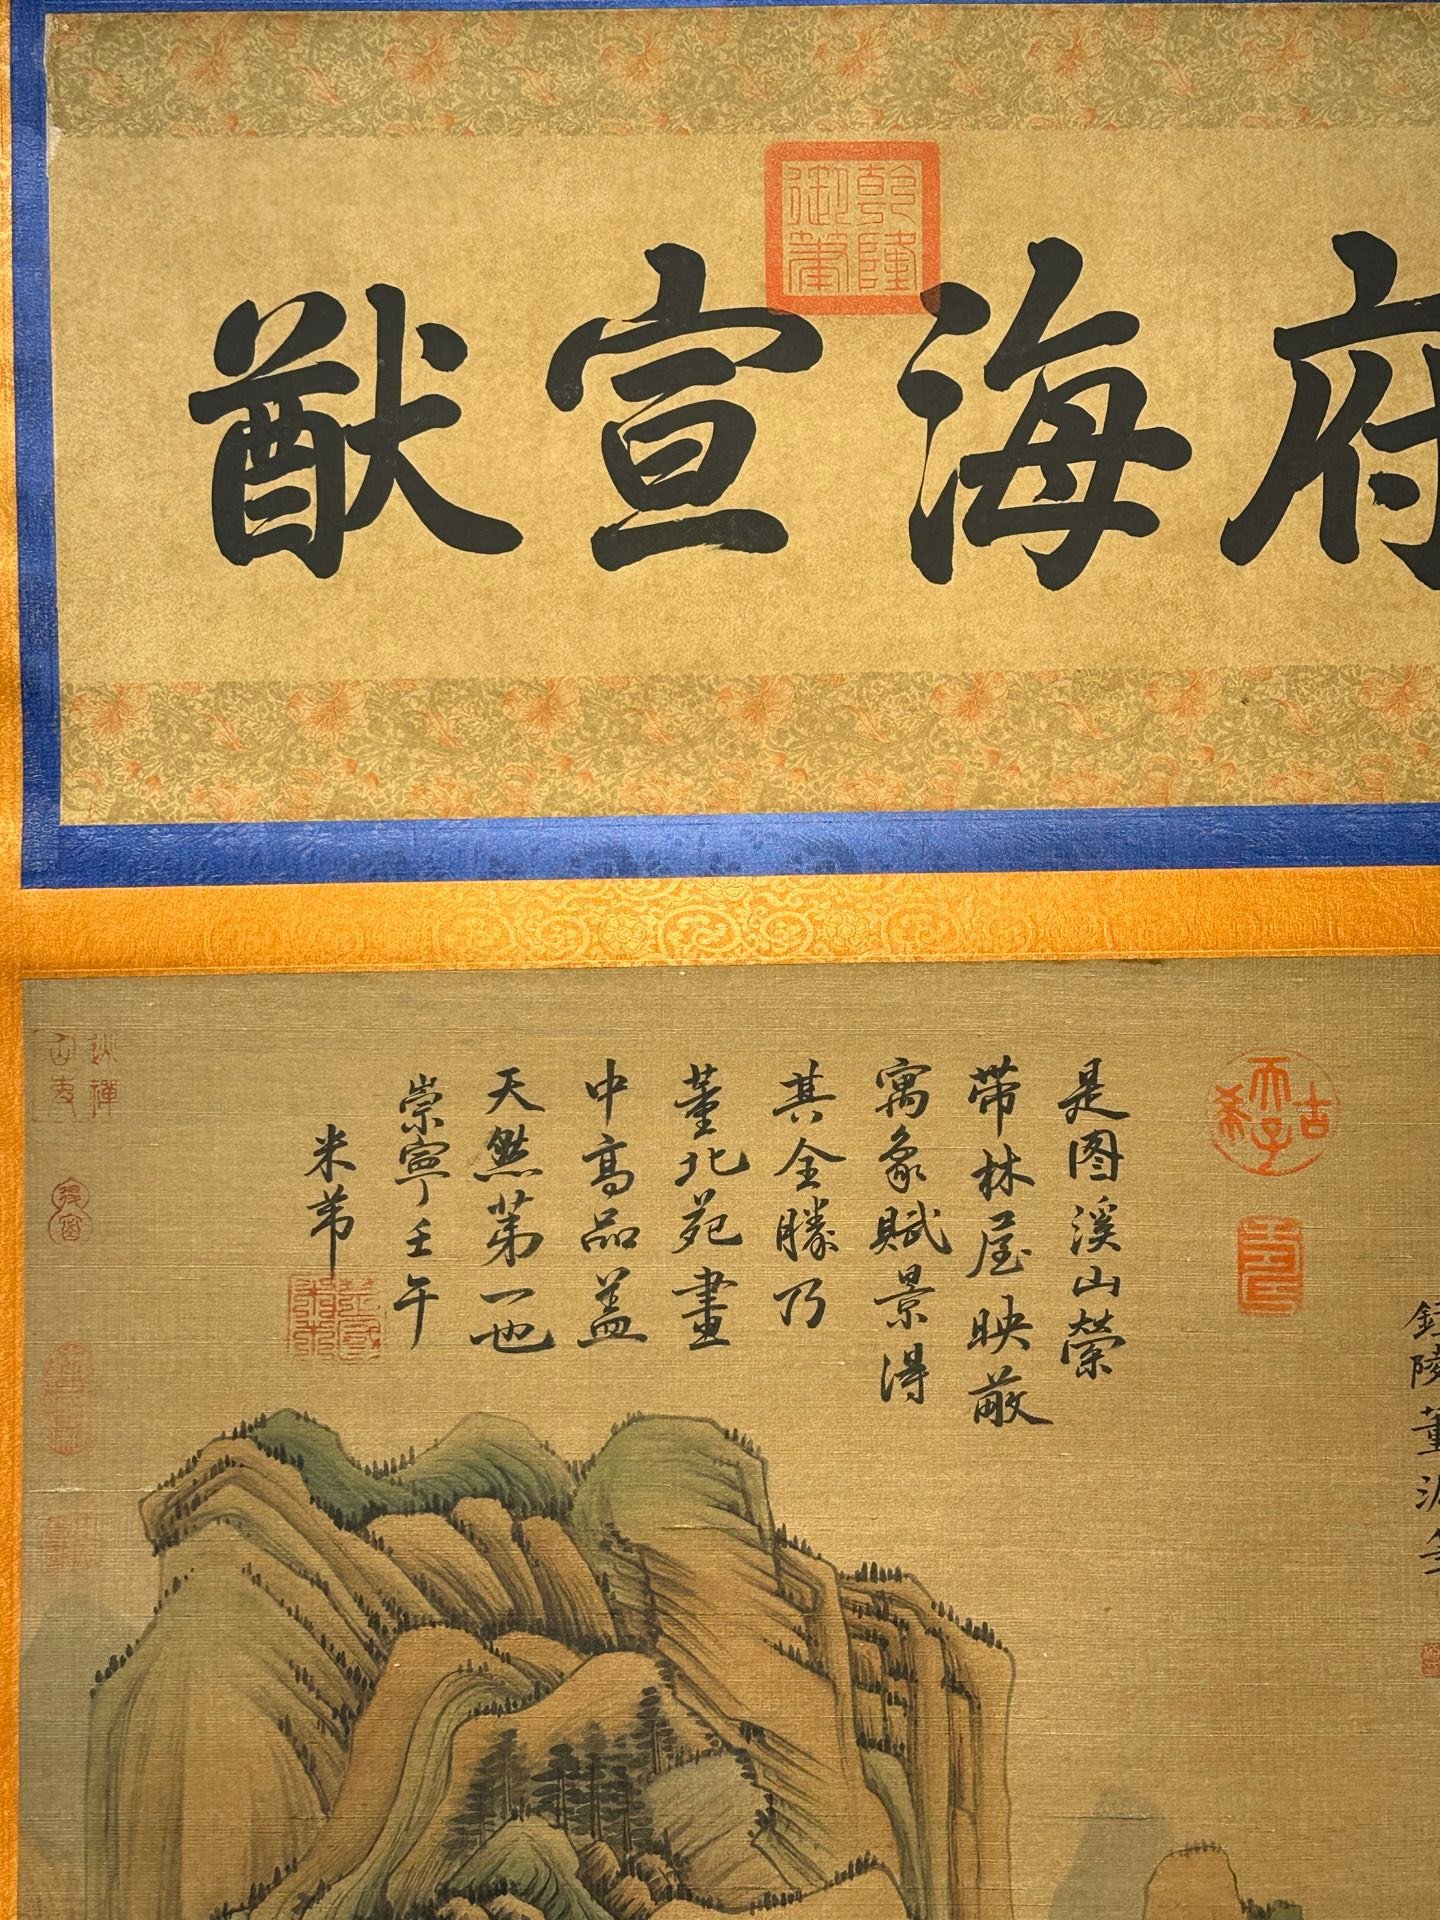 府海宣猷
乾隆
御筆
古希天子
鍾陵董源筆
是图溪山縈
带林屋映蔽
寓象賦景得
其全勝乃
董北苑畫
中高品盖
天然第一也
崇寧壬午
米芾